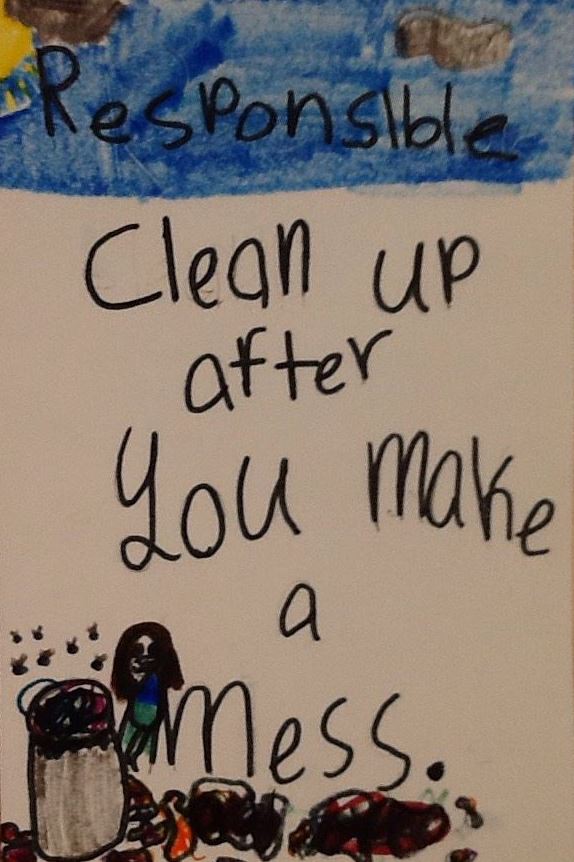 Responsible
Clean up
after
you make
a
mess.